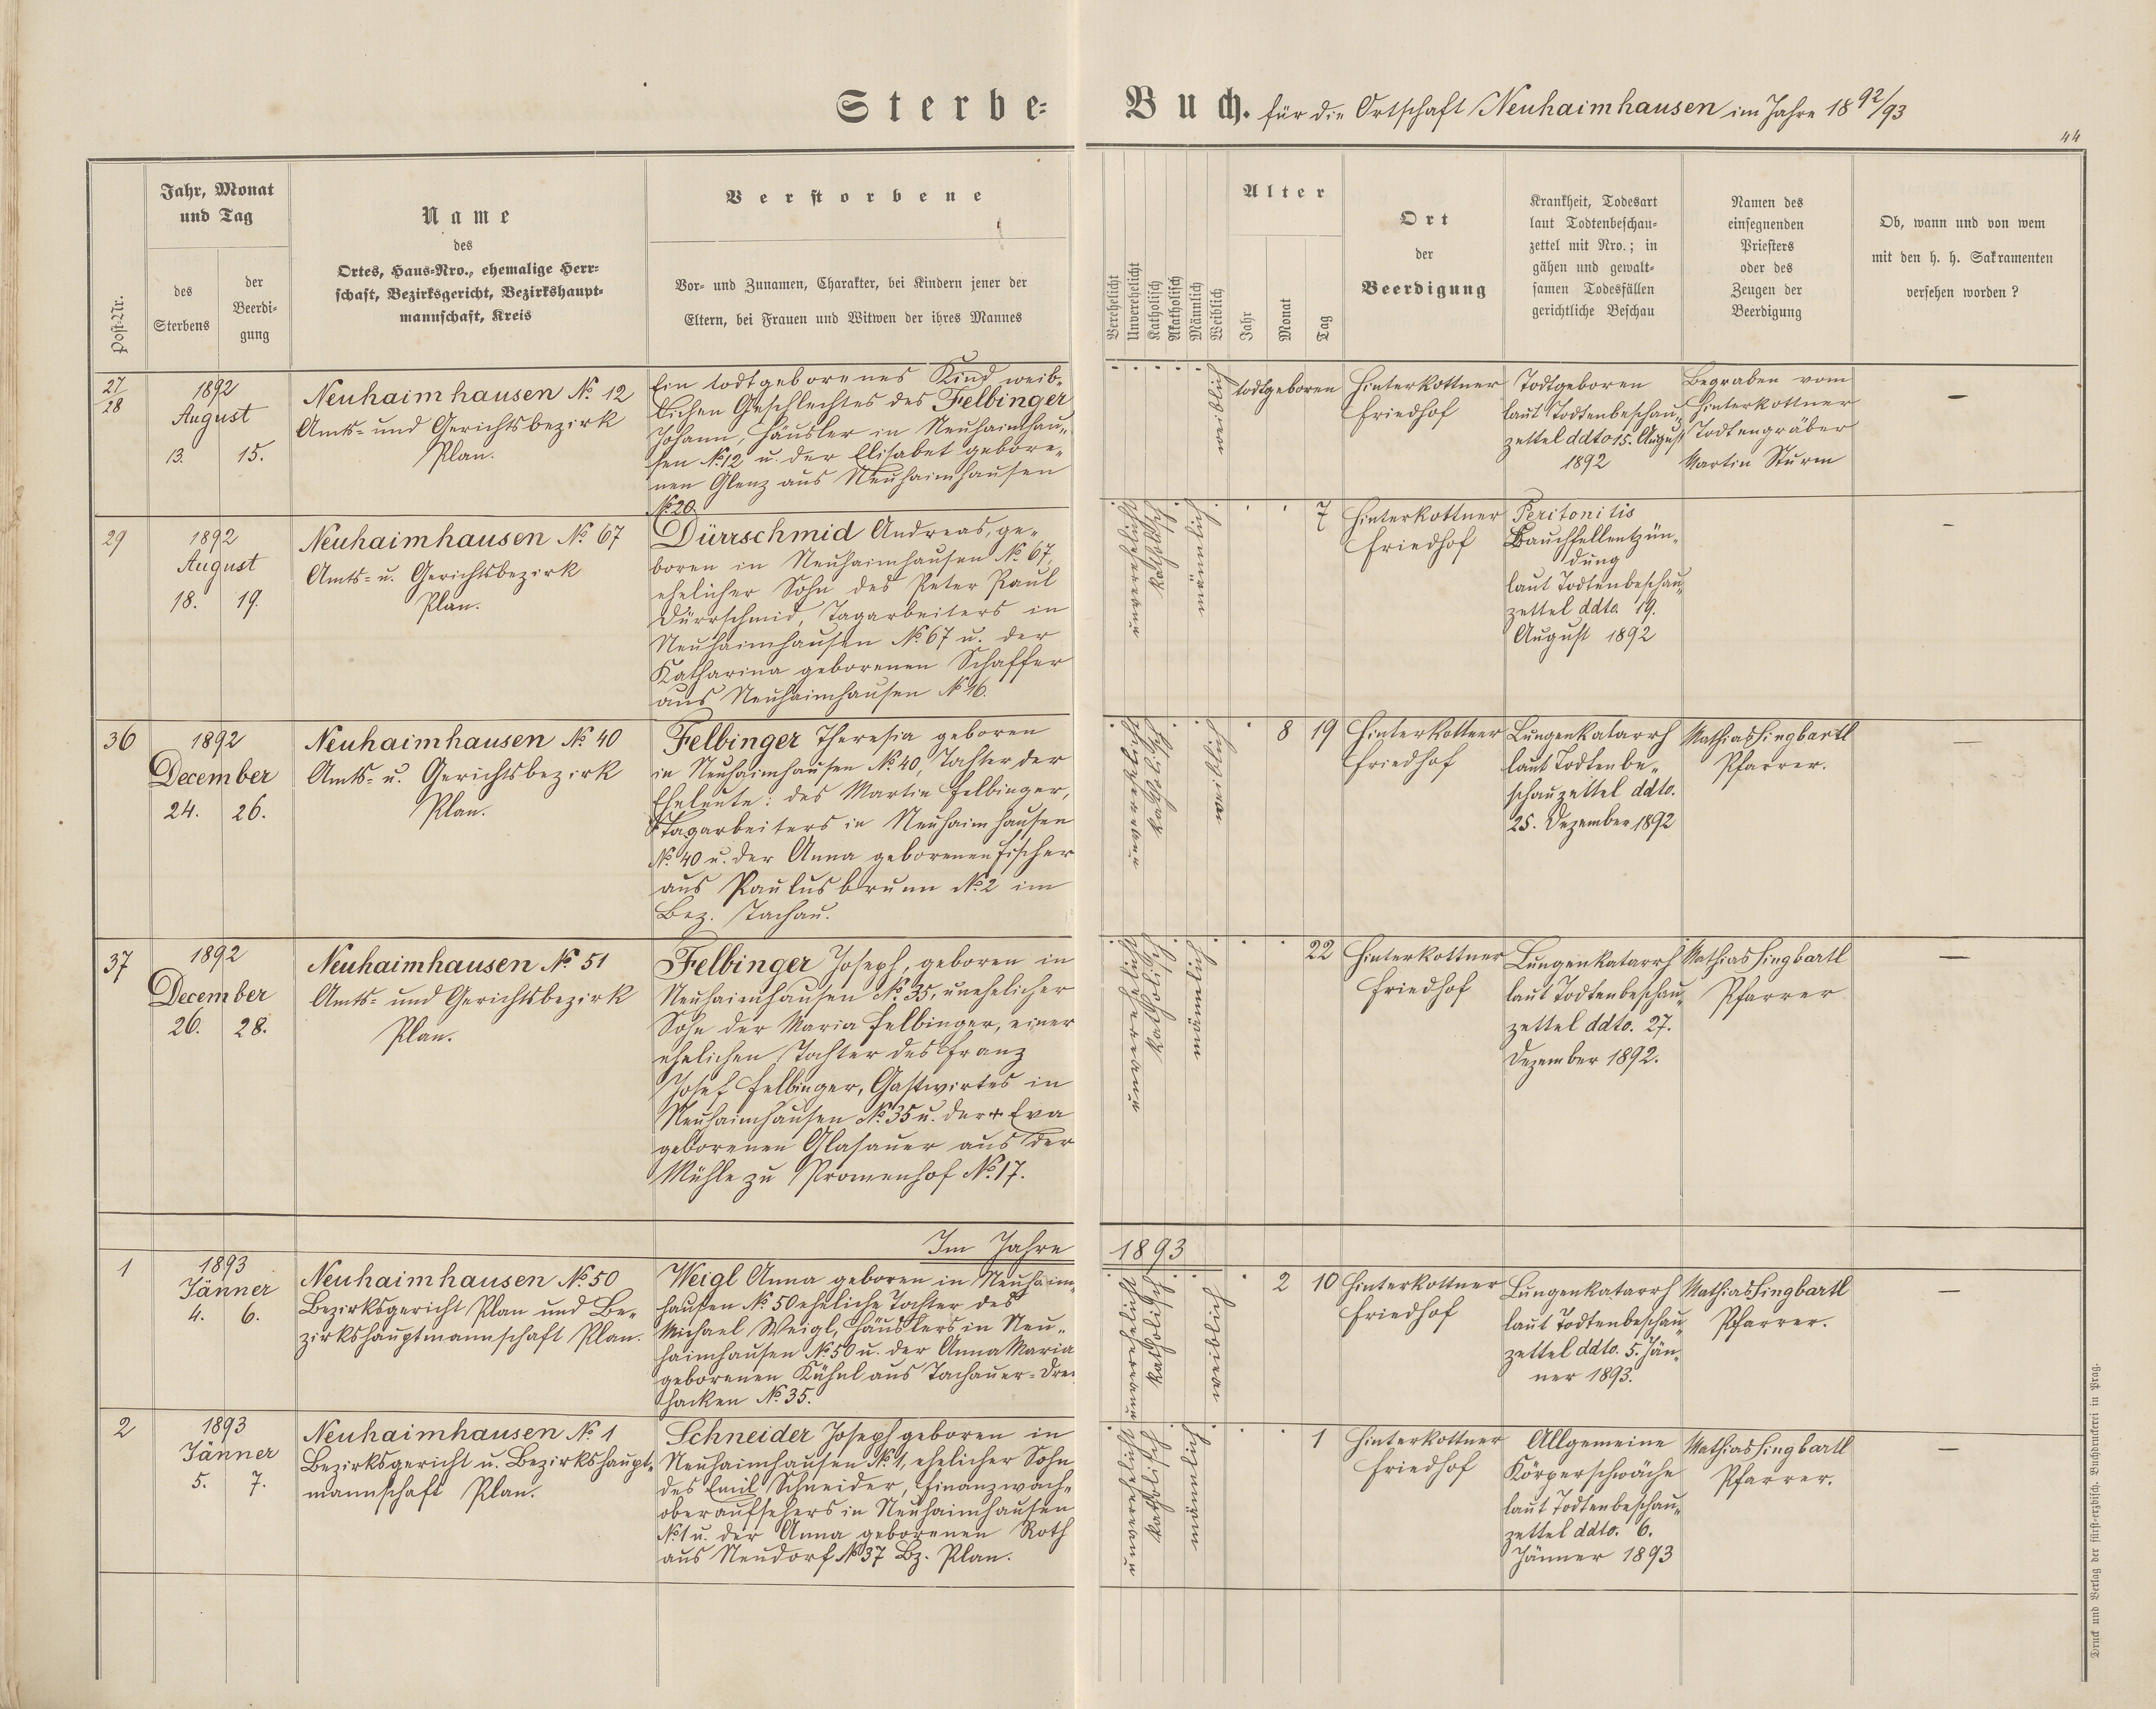 Sterbe-Buch. für die Ortschaft Neuhaimhausen im Jahre 1892/93
44
Post-Nr.
Jahr, Monat
und Tag
des
Sterbens
der
Beerdi-
gung
Name
des
Ortes, Haus-Nro., ehemalige Herr-
schaft, Bezirksgericht, Bezirkshaupt-
mannschaft, Kreis
Verstorbene
Vor- und Zunamen, Charakter, bei Kindern jener der
Eltern, bei Frauen und Witwen der ihres Mannes
Verehelicht
Unverehelicht
Katholisch
Akatholisch
Männlich
Weiblich
Alter
Jahr
Monat
Tag
Ort
der
Beerdigung
Krankheit, Todesart
laut Todtenbeschau-
zettel mit Nro.; in
gähen und gewalt-
samen Todesfällen
gerichtliche Beschau
Namen des
einsegnenden
Priesters
oder des
Zeugen der
Beerdigung
Ob, wann und von wem
mit den h. h. Sakramenten
versehen worden?
27
28
1892
August
13. 15.
Neuhaimhausen No. 12
Amts- und Gerichtsbezirk
Plan.
Ein todtgeborenes Kind weib-
lichen Geschlechtes des Felbinger
Johann, Häusler in Neuhaimhau-
sen No. 12 u. der Elisabet gebore-
nen Glenz aus Neuhaimhausen
No. 20.
weiblich
todtgeboren
Hinterkottner
Friedhof
Todtgeboren
laut Todtenbeschau-
zettel ddto 15. August
1892
Begraben vom
Hinterkottner
Todtengräber
Martin Sturm
—
29
1892
August
18. 19.
Neuhaimhausen No. 67
Amts- u. Gerichtsbezirk
Plan.
Dürrschmid Andreas, ge-
boren in Neuhaimhausen No. 67,
ehelicher Sohn des Peter Paul
Dürrschmid, Tagarbeiters in
Neuhaimhausen No. 67 u. der
Katharina geborenen Schaffer
aus Neuhaimhausen No. 16.
unverehelicht
katholisch
männlich
7
Hinterkottner
Friedhof
Peritonitis
Bauchfellentzün-
dung
laut Todtenbeschau-
zettel ddto. 19.
August 1892
—
36
1892
December
24. 26.
Neuhaimhausen No. 40
Amts- u. Gerichtsbezirk
Plan.
Felbinger Theresia geboren
in Neuhaimhausen No. 40, Tochter der
Eheleute: des Martin Felbinger,
Tagarbeiters in Neuhaimhausen
No. 40 u. der Anna geborenen Fischer
aus Paulusbrunn No. 2 im
Bez. Tachau.
unverehelicht
katholisch
weiblich
8 19
Hinterkottner
Friedhof
Lungenkatarrh
laut Todtenbe-
schauzettel ddto.
25. Dezember 1892
Mathias Singbartl
Pfarrer.
—
37
1892
December
26. 28.
Neuhaimhausen No. 51
Amts- und Gerichtsbezirk
Plan.
Felbinger Joseph, geboren in
Neuhaimhausen No. 35, unehelicher
Sohn der Maria Felbinger, einer
ehelichen Tochter des Franz
Josef Felbinger, Gastwirtes in
Neuhaimhausen No. 35 u. der + Eva
geborenen Glasauer aus der
Mühle zu Promenhof No. 17.
unverehelicht
katholisch
männlich
22
Hinterkottner
Friedhof
Lungenkatarrh
laut Todtenbeschau-
zettel ddto. 27.
Dezember 1892.
Mathias Singbartl
Pfarrer
—
Im Jahre 1893
1
1893
Jänner
4. 6.
Neuhaimhausen No. 50
Bezirksgericht Plan und Be-
zirkshauptmannschaft Plan.
Weigl Anna geboren in Neuhaim-
hausen No. 50 eheliche Tochter des
Michael Weigl, Häuslers in Neu-
haimhausen No. 50 u. der Anna Maria
geborenen Kühnl aus Tachauer-Drei
hacken No. 35.
unverehelicht
katholisch
weiblich
2 10
Hinterkottner
Friedhof
Lungenkatarrh
laut Todtenbeschau-
zettel ddto. 5. Jän-
ner 1893.
Mathias Singbartl
Pfarrer.
—
2
1893
Jänner
5. 7.
Neuhaimhausen No. 1
Bezirksgericht u. Bezirkshaupt-
mannschaft Plan.
Schneider Joseph geboren in
Neuhaimhausen No. 1, ehelicher Sohn
des Emil Schneider, Finanzwach-
oberaufsehers in Neuhaimhausen
No. 1 u. der Anna geborenen Roth
aus Neudorf No. 37 Bz. Plan.
unverehelicht
katholisch
männlich
1
Hinterkottner
Friedhof
Allgemeine
Körperschwäche
laut Todtenbeschau-
zettel ddto. 6.
Jänner 1893
Mathias Singbartl
Pfarrer.
—
Druck und Verlag der fürst-erzbisch. Buchdruckerei in Prag.